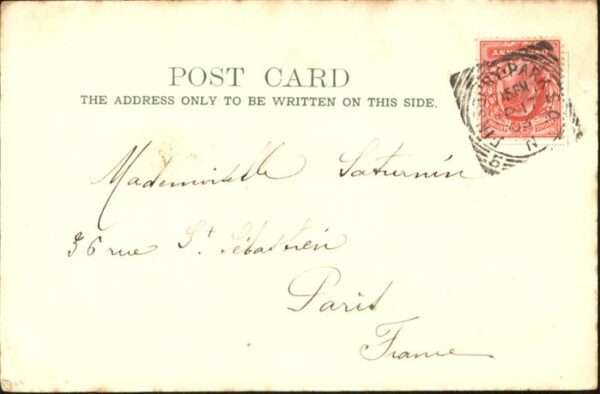 POST CARD
THE ADDRESS ONLY TO BE WRITTEN ON THIS SIDE.
Mademoiselle Saturnin
36 rue St Sébastien
Paris
France